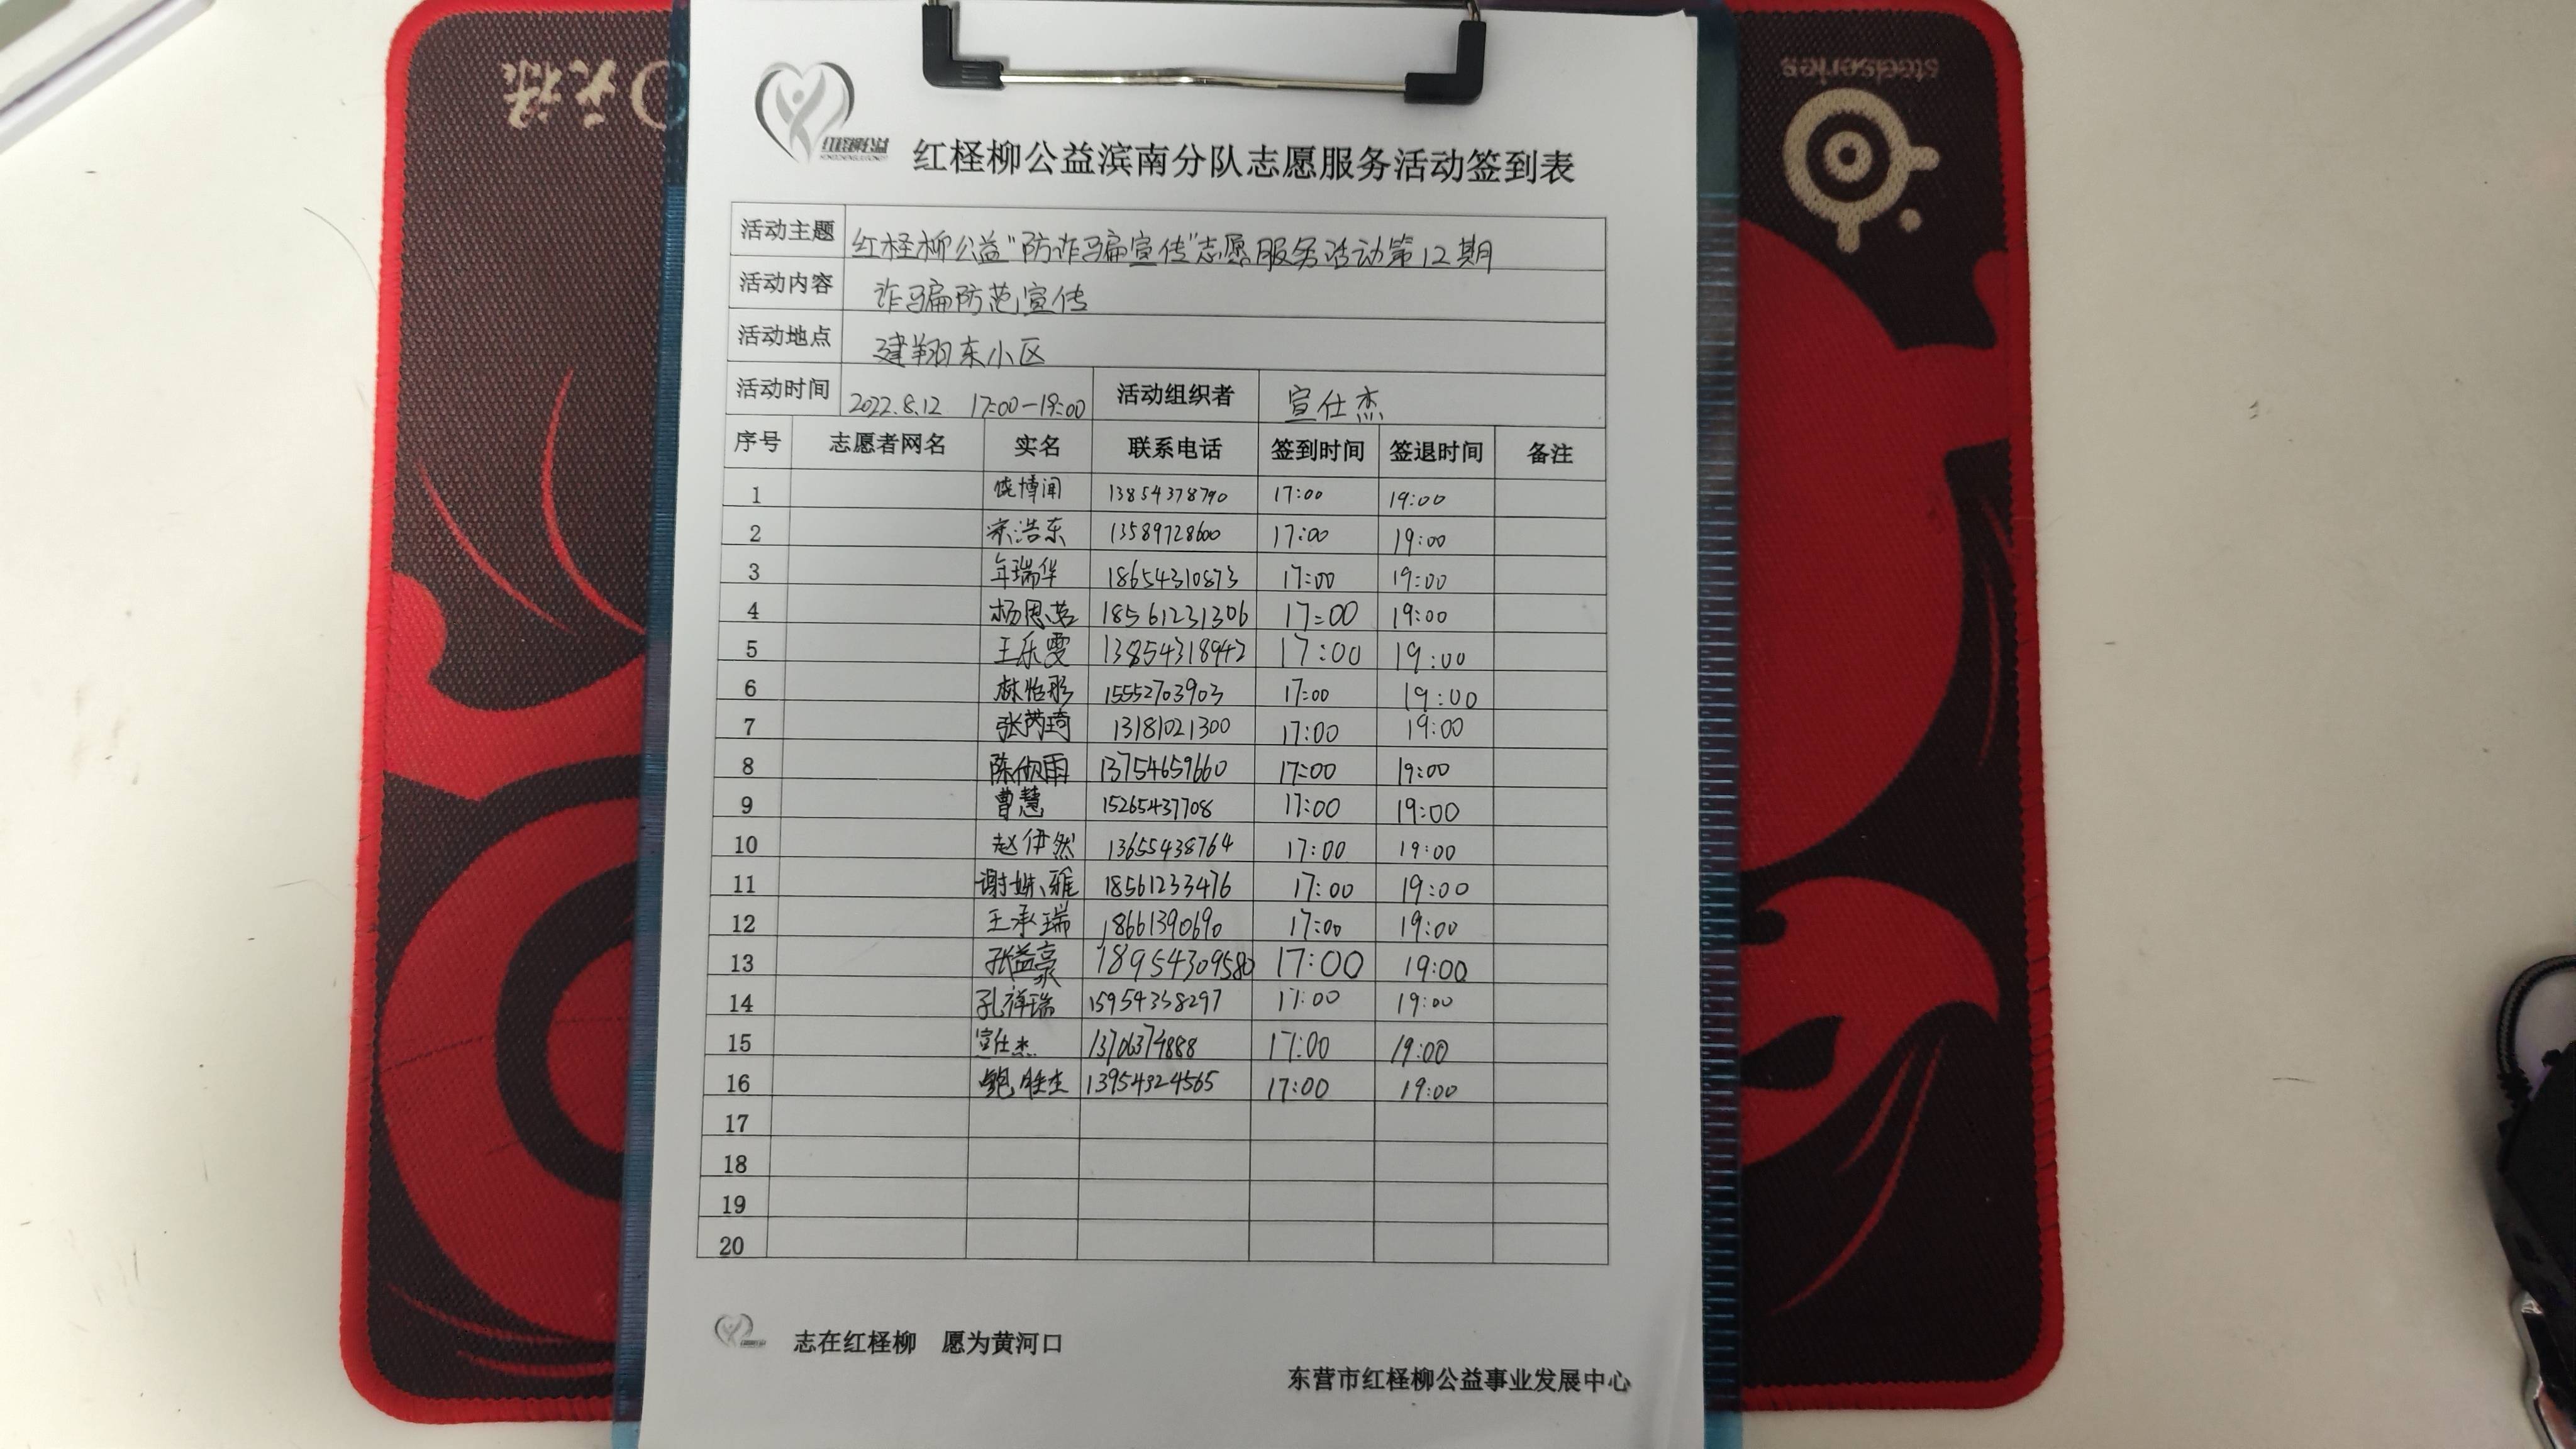 steelseries
红柽柳公益
红柽柳公益滨南分队志愿服务活动签到表
活动主题 红柽柳公益"防诈骗宣传"志愿服务活动第12期
活动内容 诈骗防范宣传
活动地点 建翔东小区
活动时间 2022.8.12 17:00-19:00 活动组织者 宣仕杰
序号 志愿者网名 实名 联系电话 签到时间 签退时间 备注
1 饶博闻 13854378790 17:00 19:00
2 宋浩东 13589728600 17:00 19:00
3 年瑞华 18654310873 17:00 19:00
4 杨恩茗 18561231306 17:00 19:00
5 王乐雯 13854318942 17:00 19:00
6 林怡彤 15552703903 17:00 19:00
7 张芮琦 13181021300 17:00 19:00
8 陈俶雨 13754659660 17:00 19:00
9 曹慧 15265437708 17:00 19:00
10 赵伊然 13655438764 17:00 19:00
11 谢姝雅 18561233476 17:00 19:00
12 王承瑞 18661390690 17:00 19:00
13 张益豪 18954309580 17:00 19:00
14 孔祥瑞 15954358297 17:00 19:00
15 宣仕杰 13706374888 17:00 19:00
16 鲍胜杰 13954324565 17:00 19:00
17
18
19
20
志在红柽柳 愿为黄河口
东营市红柽柳公益事业发展中心